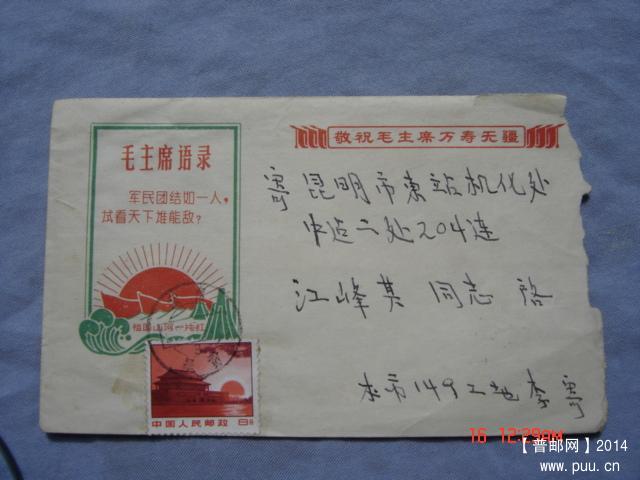 敬祝毛主席万寿无疆
毛主席语录
军民团结如一人，
试看天下谁能敌？
祖国山河一片红
寄 昆明市东站机化处
中点二处204连
江峰其 同志 启
本市149工地李寄
中国人民邮政 8分
16 12:29AM
【普邮网】2014
www.puu.cn